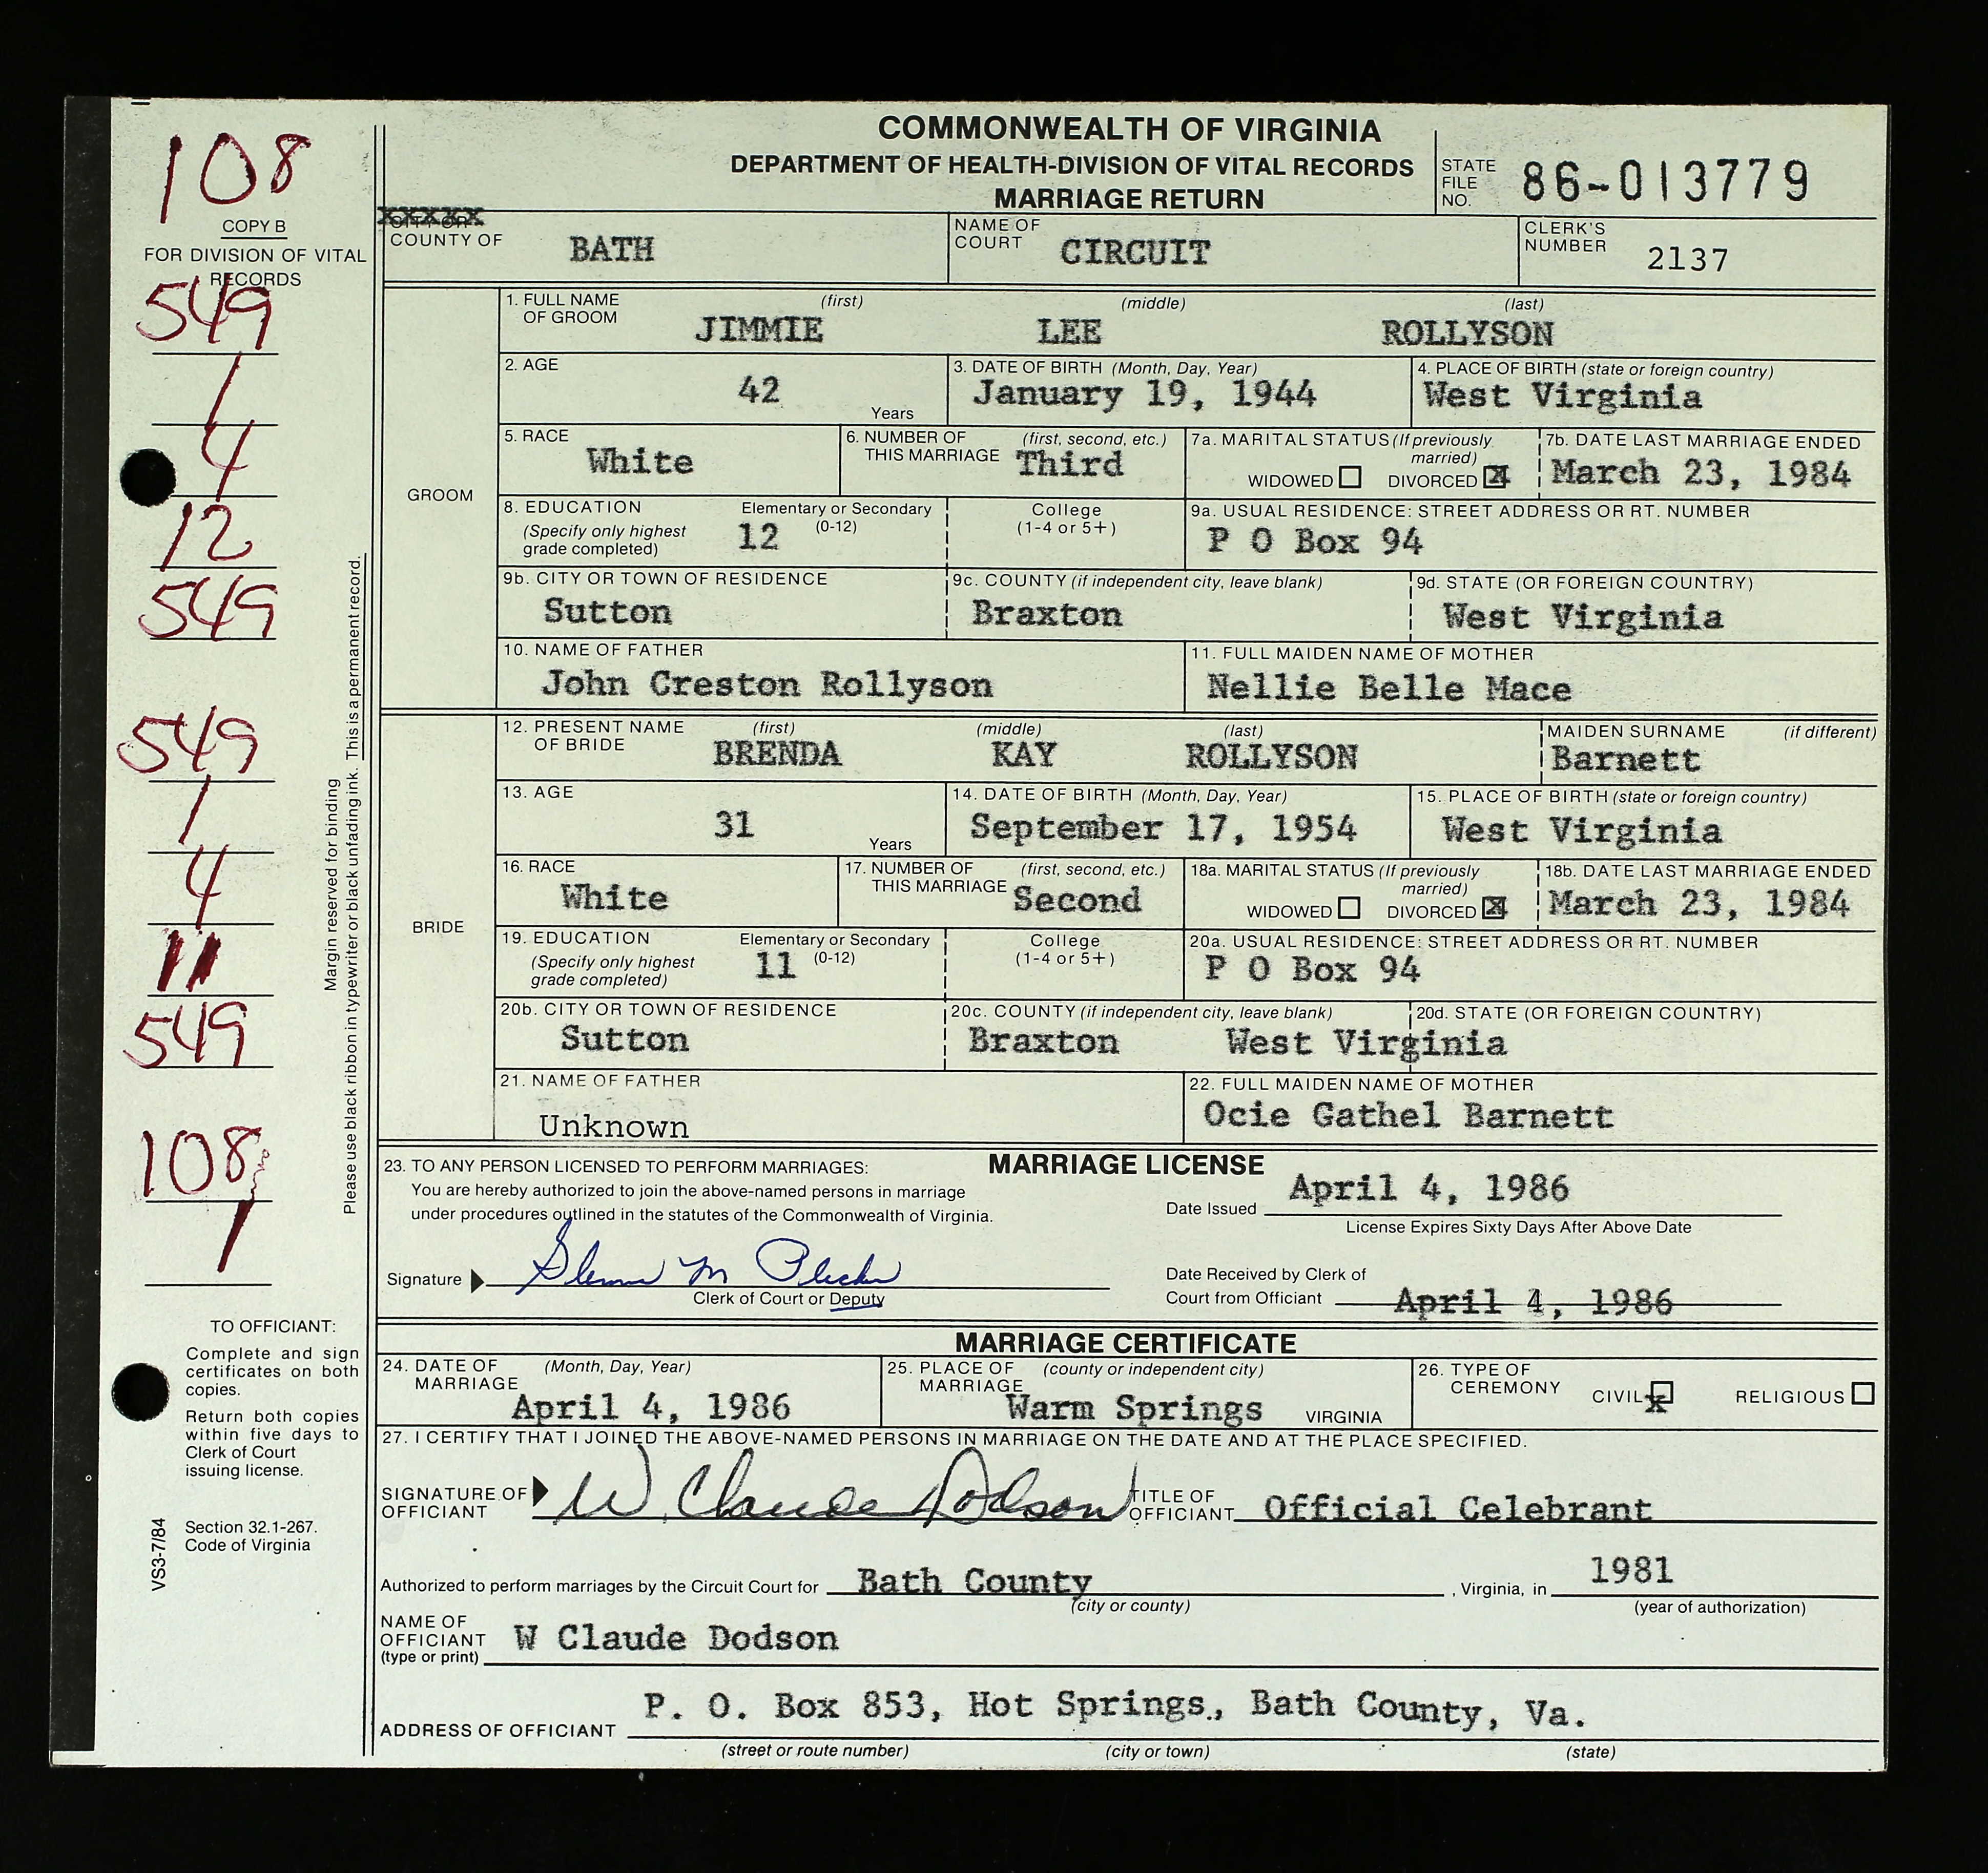 COMMONWEALTH OF VIRGINIA
DEPARTMENT OF HEALTH-DIVISION OF VITAL RECORDS
MARRIAGE RETURN
STATE FILE NO. 86-013779
108
COPY B
FOR DIVISION OF VITAL RECORDS
549
1
4
12
549
549
1
4
11
549
108
1
Margin reserved for binding
Please use black ribbon in typewriter or black unfading ink. This is a permanent record.
TO OFFICIANT:
Complete and sign
certificates on both
copies.
Return both copies
within five days to
Clerk of Court
issuing license.
Section 32.1-267.
Code of Virginia
VS3-7/84
CITY OR
COUNTY OF BATH
NAME OF COURT CIRCUIT
CLERK'S NUMBER 2137
GROOM
1. FULL NAME OF GROOM (first) JIMMIE (middle) LEE (last) ROLLYSON
2. AGE 42 Years
3. DATE OF BIRTH (Month, Day, Year) January 19, 1944
4. PLACE OF BIRTH (state or foreign country) West Virginia
5. RACE White
6. NUMBER OF THIS MARRIAGE (first, second, etc.) Third
7a. MARITAL STATUS (If previously married) WIDOWED DIVORCED X
7b. DATE LAST MARRIAGE ENDED March 23, 1984
8. EDUCATION (Specify only highest grade completed) Elementary or Secondary (0-12) 12 College (1-4 or 5+)
9a. USUAL RESIDENCE: STREET ADDRESS OR RT. NUMBER P O Box 94
9b. CITY OR TOWN OF RESIDENCE Sutton
9c. COUNTY (if independent city, leave blank) Braxton
9d. STATE (OR FOREIGN COUNTRY) West Virginia
10. NAME OF FATHER John Creston Rollyson
11. FULL MAIDEN NAME OF MOTHER Nellie Belle Mace
BRIDE
12. PRESENT NAME OF BRIDE (first) BRENDA (middle) KAY (last) ROLLYSON
MAIDEN SURNAME (if different) Barnett
13. AGE 31 Years
14. DATE OF BIRTH (Month, Day, Year) September 17, 1954
15. PLACE OF BIRTH (state or foreign country) West Virginia
16. RACE White
17. NUMBER OF THIS MARRIAGE (first, second, etc.) Second
18a. MARITAL STATUS (If previously married) WIDOWED DIVORCED X
18b. DATE LAST MARRIAGE ENDED March 23, 1984
19. EDUCATION (Specify only highest grade completed) Elementary or Secondary (0-12) 11 College (1-4 or 5+)
20a. USUAL RESIDENCE: STREET ADDRESS OR RT. NUMBER P O Box 94
20b. CITY OR TOWN OF RESIDENCE Sutton
20c. COUNTY (if independent city, leave blank) Braxton
20d. STATE (OR FOREIGN COUNTRY) West Virginia
21. NAME OF FATHER Unknown
22. FULL MAIDEN NAME OF MOTHER Ocie Gathel Barnett
MARRIAGE LICENSE
23. TO ANY PERSON LICENSED TO PERFORM MARRIAGES:
You are hereby authorized to join the above-named persons in marriage
under procedures outlined in the statutes of the Commonwealth of Virginia.
Date Issued April 4, 1986
License Expires Sixty Days After Above Date
Signature
Clerk of Court or Deputy
Date Received by Clerk of
Court from Officiant April 4, 1986
MARRIAGE CERTIFICATE
24. DATE OF MARRIAGE (Month, Day, Year) April 4, 1986
25. PLACE OF MARRIAGE (county or independent city) Warm Springs VIRGINIA
26. TYPE OF CEREMONY CIVIL X RELIGIOUS
27. I CERTIFY THAT I JOINED THE ABOVE-NAMED PERSONS IN MARRIAGE ON THE DATE AND AT THE PLACE SPECIFIED.
SIGNATURE OF OFFICIANT W. Claude Dodson TITLE OF OFFICIANT Official Celebrant
Authorized to perform marriages by the Circuit Court for Bath County, Virginia, in 1981
(city or county) (year of authorization)
NAME OF OFFICIANT (type or print) W Claude Dodson
ADDRESS OF OFFICIANT P. O. Box 853, Hot Springs., Bath County, Va.
(street or route number) (city or town) (state)